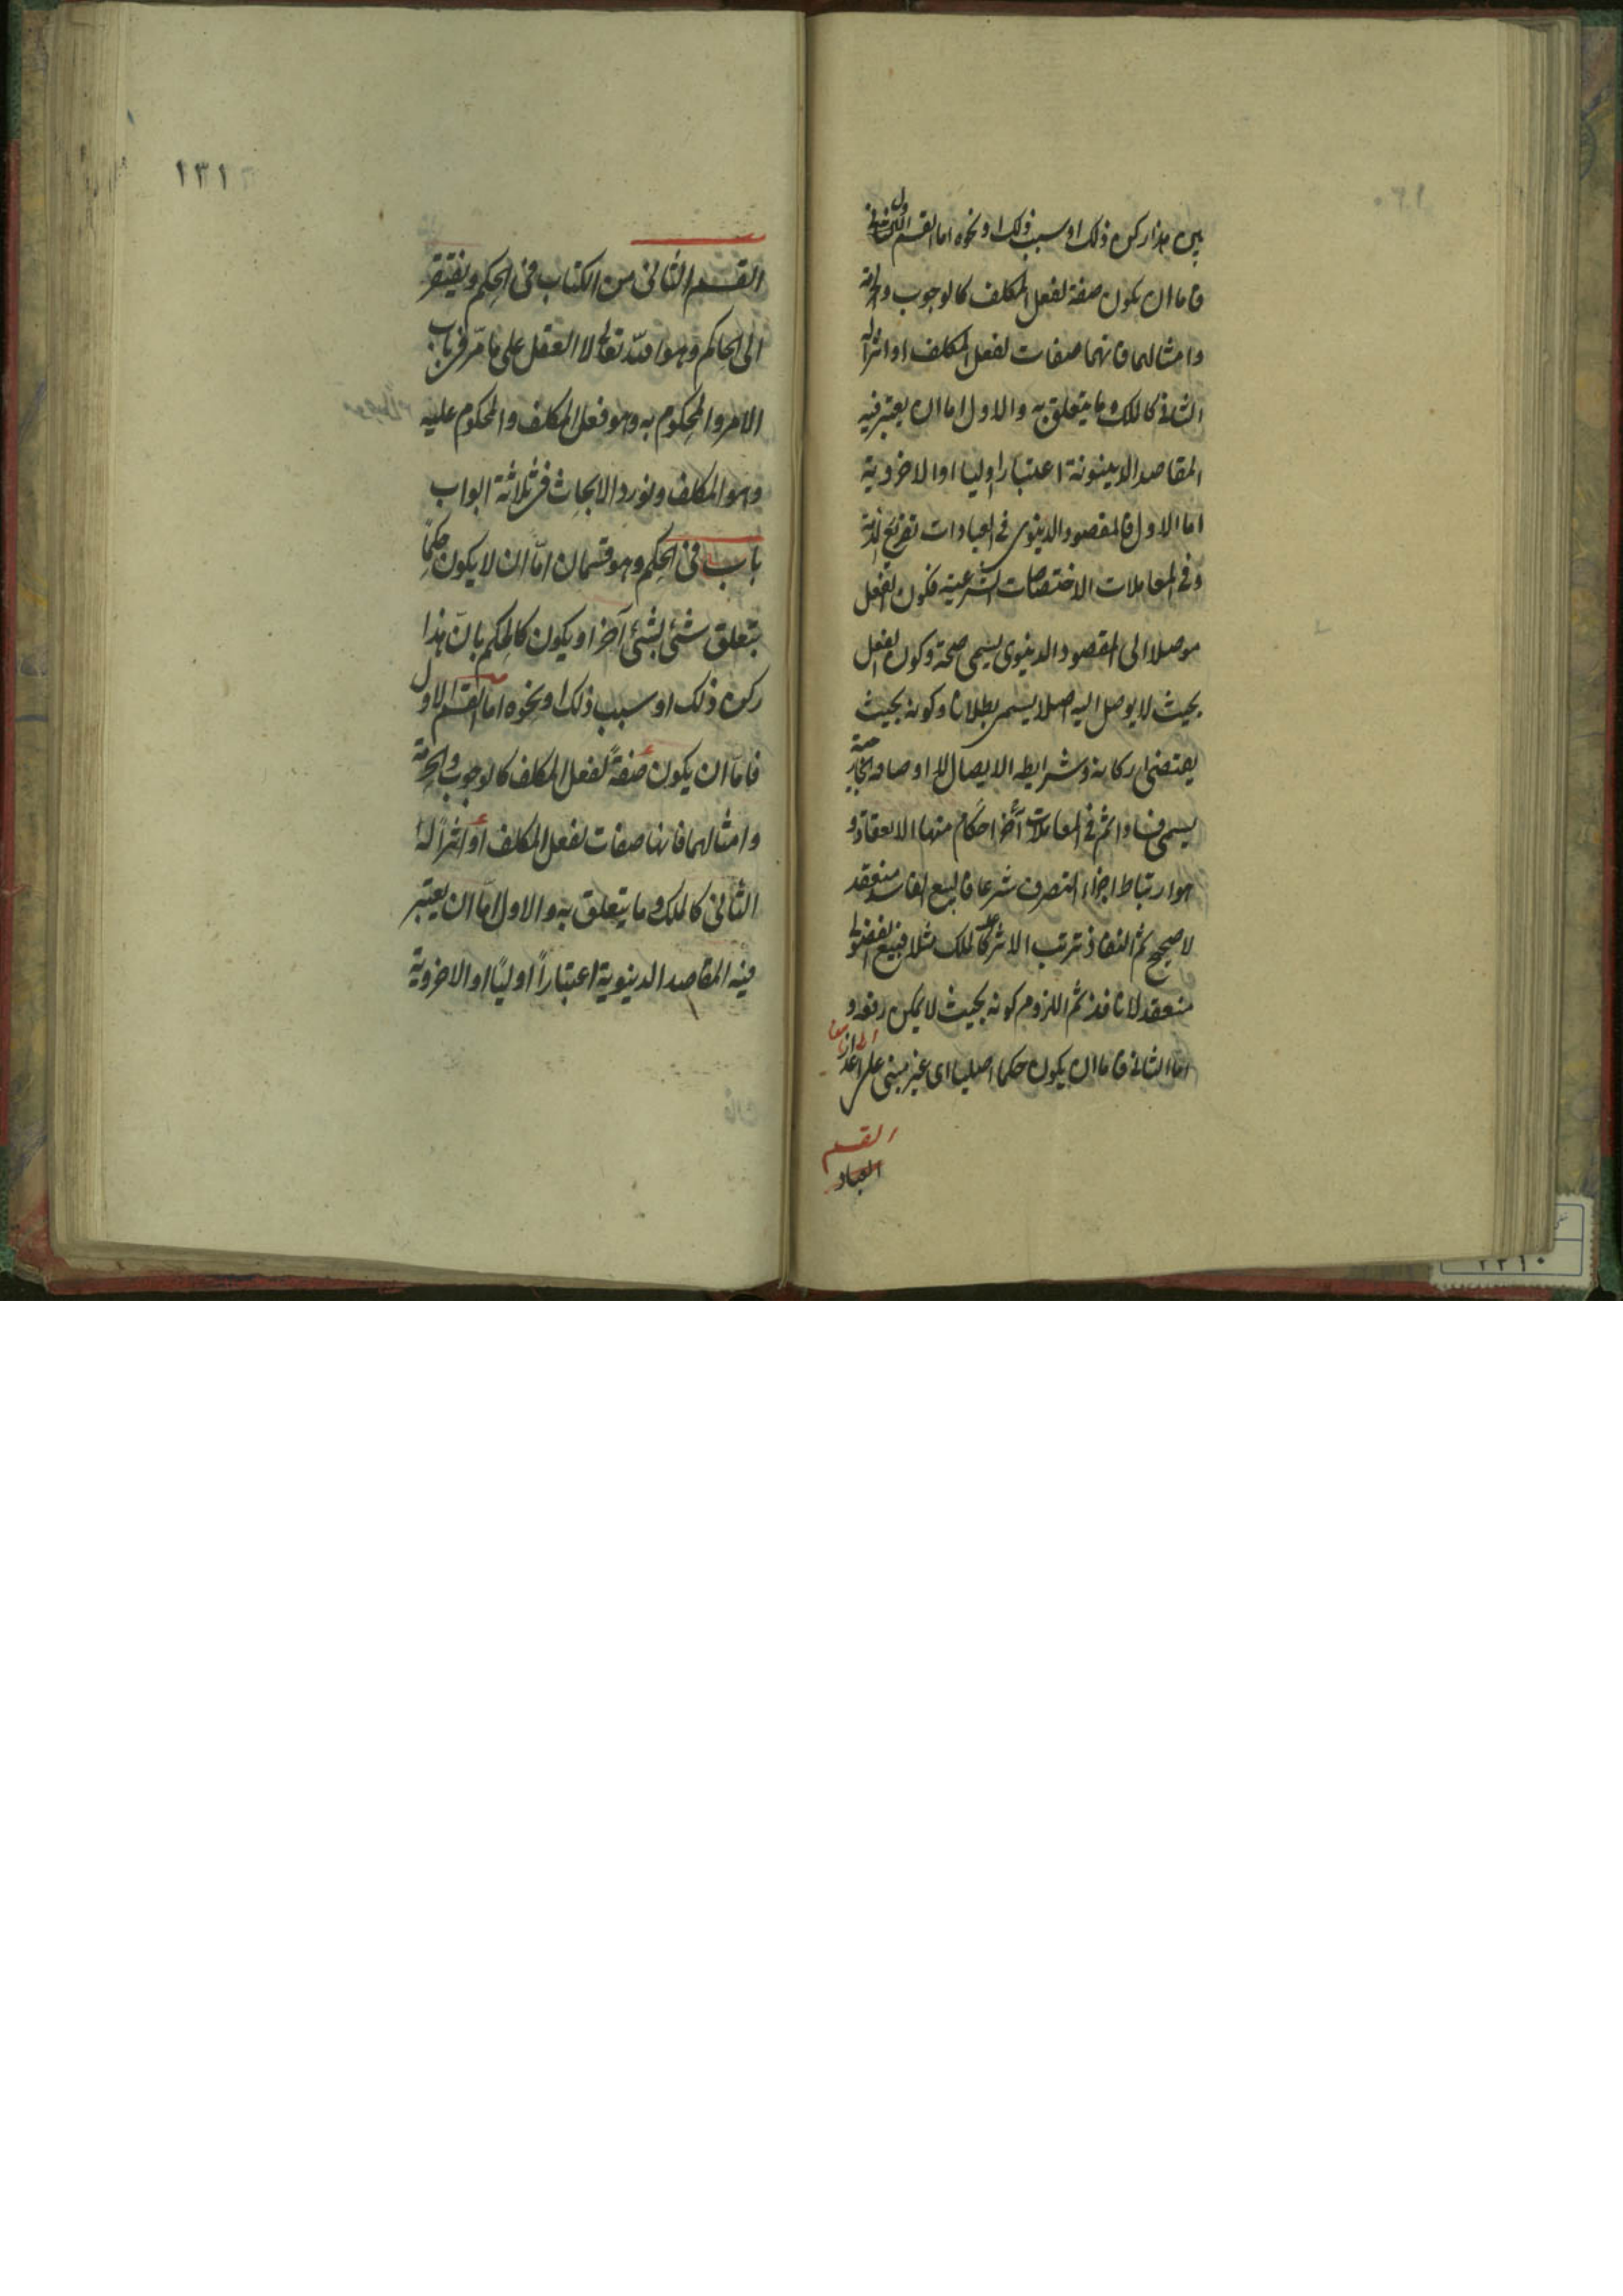 بان هذا ركن ذلك او سبب ذلك او نحوه اما القسم الاول
فاما ان يكون صفة لفعل المكلف كالوجوب والحرمة
وامثالهما فانهما صفات لفعل المكلف او اثرا له
الثانى كالملك وما يتعلق به والاول اما ان يعتبر فيه
المقاصد الدينوية اعتبارا اوليا او الاخروية
اما الاول فالمقصود الدينوى فى العبادات تفريغ الذمة
وفى المعاملات الاختصاصات الشرعية فكون الفعل
موصلا الى المقصود الدينوى يسمى صحة وكون الفعل
بحيث لا يوصل اليه اصلا يسمى بطلانا وكونه بحيث
يقتضى اركانه وشرايطه الايصال لا اوصافه الخارجية
يسمى فسادا ثم فى المعاملات احكام اخر منها الانعقاد و
هو ارتباط اجزاء التصرف شرعا فالبيع الفاسد منعقد
لا صحيح ثم النفاذ ترتب الاثر عليه كالملك مثلا فبيع الفضولى
منعقد لا نافذ ثم اللزوم كونه بحيث لا يمكن رفعه و
اما الثانى فاما ان يكون حكما اصليا اى غير مبنى على اعذار
القسم
العباد
١٣١
القسم الثانى من الكتاب فى الحكم ويفتقر
الى الحاكم وهو الله تعالى لا العقل على ما مرّ فى باب
الامر والمحكوم به وهو فعل المكلف والمحكوم عليه
وهو المكلف ونورد الابحاث فى ثلاثة ابواب
باب فى الحكم وهو قسمان امّا ان لا يكون حكمًا
بتعلق شئ بشئ آخر او يكون كالحكم بانّ هذا
ركن ذلك او سبب ذلك او نحوه اما القسم الاول
فامّا ان يكون صفةً لفعل المكلف كالوجوب والحرمة
وامثالهما فانها صفات لفعل المكلف او اثراً له
الثانى كالملك وما يتعلق به والاول امّا ان يعتبر
فيه المقاصد الدينوية اعتباراً اوليًا او الاخروية